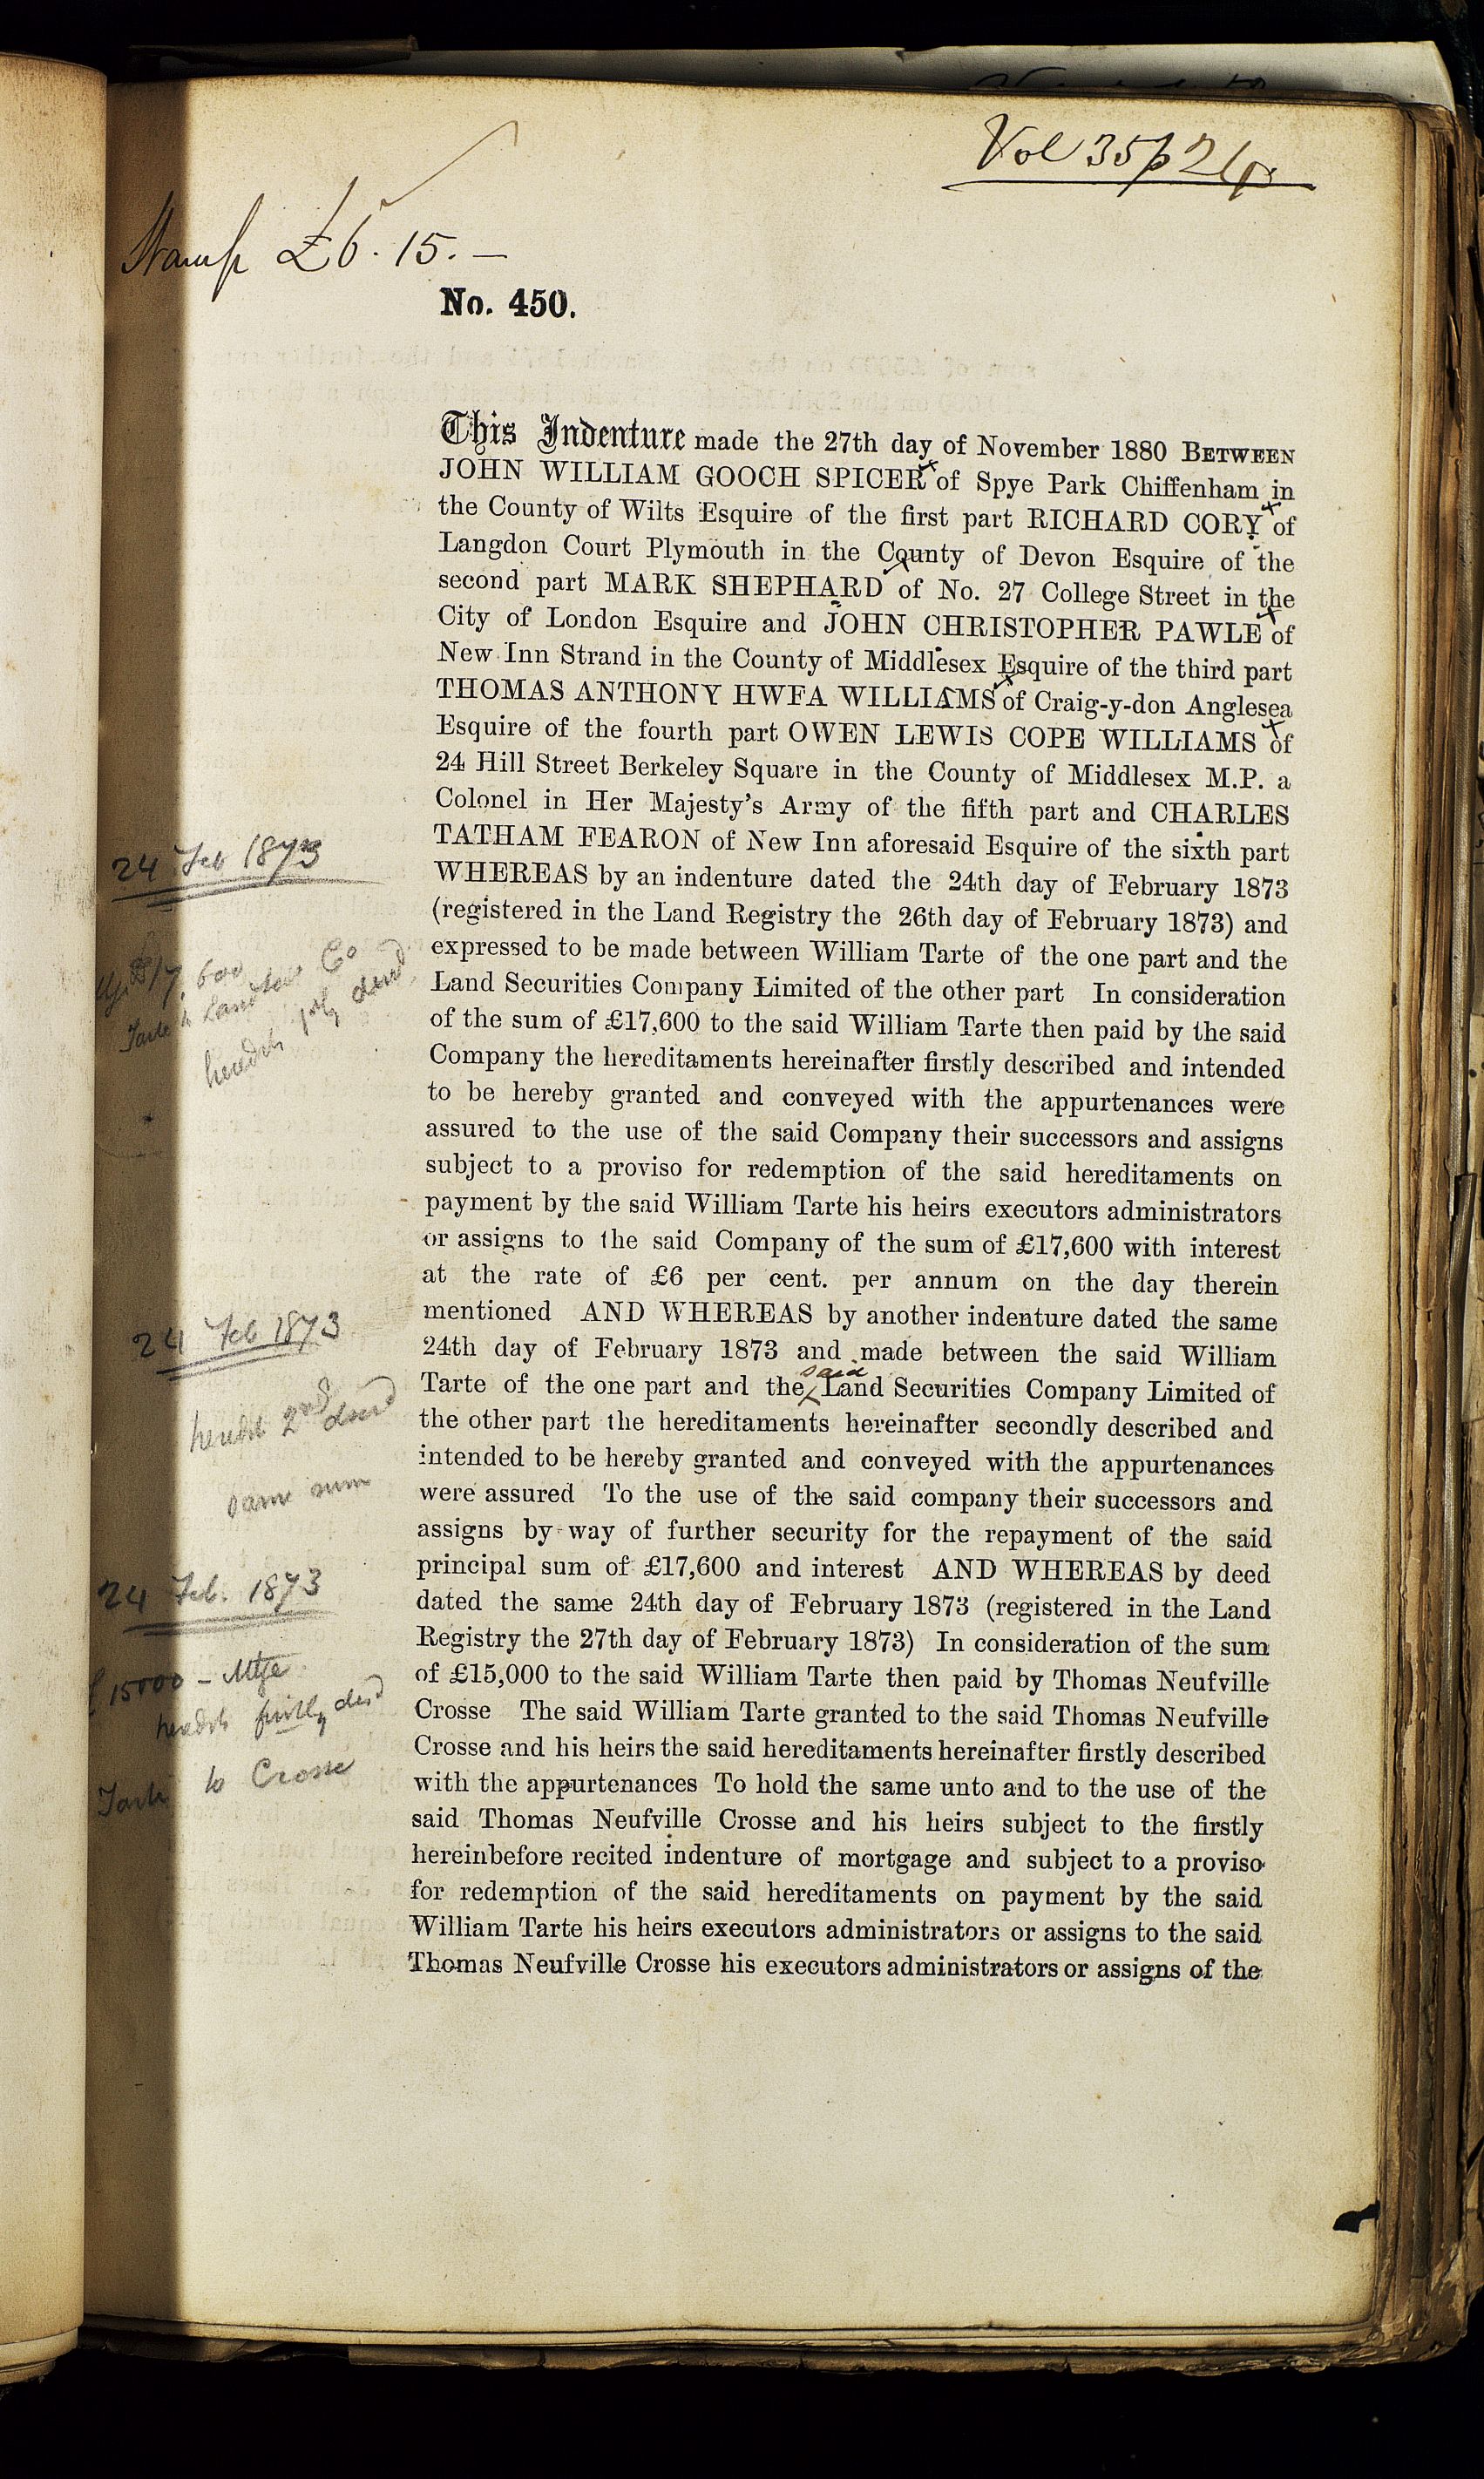 Vol 35 p
Stamp £6.15.—
No. 450.
This Indenture made the 27th day of November 1880 BETWEEN
JOHN WILLIAM GOOCH SPICER of Spye Park Chiffenham in
the County of Wilts Esquire of the first part RICHARD CORY of
Langdon Court Plymouth in the County of Devon Esquire of the
second part MARK SHEPHARD of No. 27 College Street in the
City of London Esquire and JOHN CHRISTOPHER PAWLE of
New Inn Strand in the County of Middlesex Esquire of the third part
THOMAS ANTHONY HWFA WILLIAMS of Craig-y-don Anglesea
Esquire of the fourth part OWEN LEWIS COPE WILLIAMS of
24 Hill Street Berkeley Square in the County of Middlesex M.P. a
Colonel in Her Majesty's Army of the fifth part and CHARLES
TATHAM FEARON of New Inn aforesaid Esquire of the sixth part
24 Feb 1873
WHEREAS by an indenture dated the 24th day of February 1873
(registered in the Land Registry the 26th day of February 1873) and
expressed to be made between William Tarte of the one part and the
17,600
Land Securities Company Limited of the other part In consideration
Tarte to Land Secs Co
of the sum of £17,600 to the said William Tarte then paid by the said
heredts desd
Company the hereditaments hereinafter firstly described and intended
to be hereby granted and conveyed with the appurtenances were
assured to the use of the said Company their successors and assigns
subject to a proviso for redemption of the said hereditaments on
payment by the said William Tarte his heirs executors administrators
or assigns to the said Company of the sum of £17,600 with interest
at the rate of £6 per cent. per annum on the day therein
mentioned AND WHEREAS by another indenture dated the same
24 Feb 1873
24th day of February 1873 and made between the said William
Tarte of the one part and the said Land Securities Company Limited of
heredts 2nd desd
the other part the hereditaments hereinafter secondly described and
intended to be hereby granted and conveyed with the appurtenances
same sum
were assured To the use of the said company their successors and
assigns by way of further security for the repayment of the said
principal sum of £17,600 and interest AND WHEREAS by deed
24 Feb. 1873
dated the same 24th day of February 1873 (registered in the Land
Registry the 27th day of February 1873) In consideration of the sum
£15000 – Mtge
of £15,000 to the said William Tarte then paid by Thomas Neufville
heredts firstly desd
Crosse The said William Tarte granted to the said Thomas Neufville
Crosse and his heirs the said hereditaments hereinafter firstly described
Tarte to Crosse
with the appurtenances To hold the same unto and to the use of the
said Thomas Neufville Crosse and his heirs subject to the firstly
hereinbefore recited indenture of mortgage and subject to a proviso
for redemption of the said hereditaments on payment by the said
William Tarte his heirs executors administrators or assigns to the said
Thomas Neufville Crosse his executors administrators or assigns of the